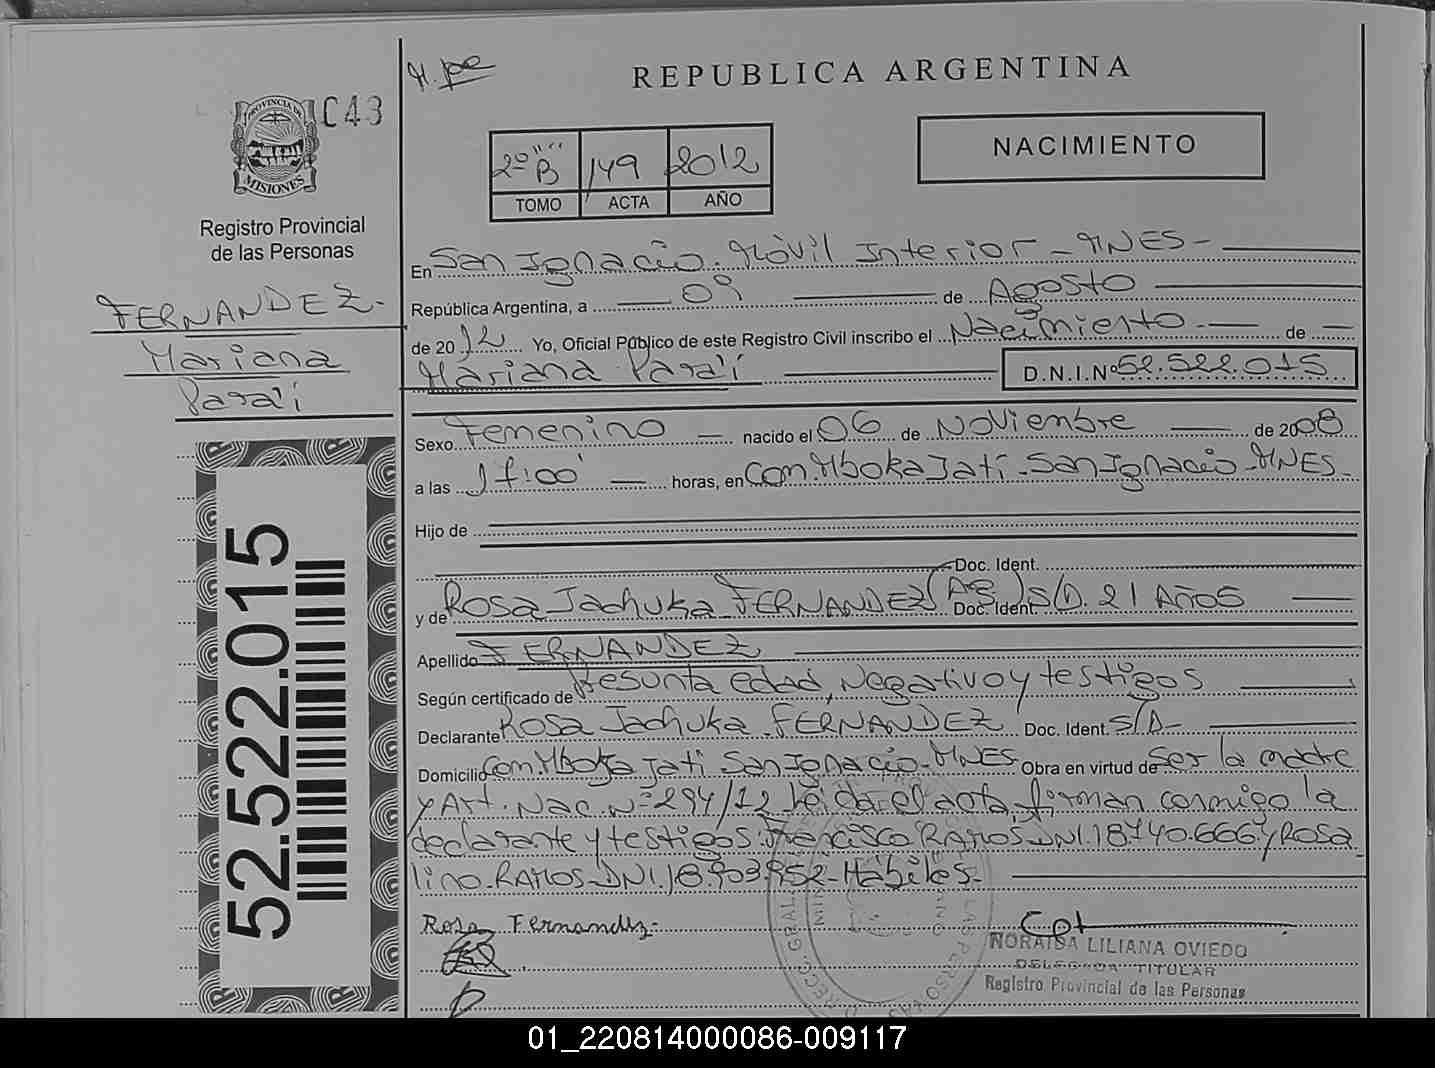 H. pe
REPUBLICA ARGENTINA
PROVINCIA DE
MISIONES
C43
Registro Provincial
de las Personas
2º "B" 149 2012
TOMO ACTA AÑO
NACIMIENTO
FERNANDEZ-
Mariana
Para'i
52.522.015
En San Ignacio. Móvil Interior - MNES -
República Argentina, a 09 de Agosto
de 2012 Yo, Oficial Público de este Registro Civil inscribo el Nacimiento de
Mariana Para'i D.N.I.Nº 52.522.015
Sexo Femenino nacido el 06 de Noviembre de 2008
a las 17:00' horas, en Com. Mboka Jatí - San Ignacio - MNES -
Hijo de
Doc. Ident.
y de Rosa Jachuka FERNANDEZ (AB) Doc. Ident. S/D. 21 AÑOS
Apellido FERNANDEZ
Según certificado de Presunta edad, Negativo y testigos
Declarante Rosa Jachuka FERNANDEZ Doc. Ident. S/D-
Domicilio Com. Mboka Jati San Ignacio - MNES Obra en virtud de Ser la madre
y Art. Nac. Nº 294/12 Leída el acta, firman conmigo la
declarante y testigos: Francisco RAMOS DNI. 18.740.666 y ROSA
lino - RAMOS - DNI. 18.903.952 - Hábiles -
Rosa Fernandez.
NORAIDA LILIANA OVIEDO
DELEGADA TITULAR
Registro Provincial de las Personas
01_220814000086-009117